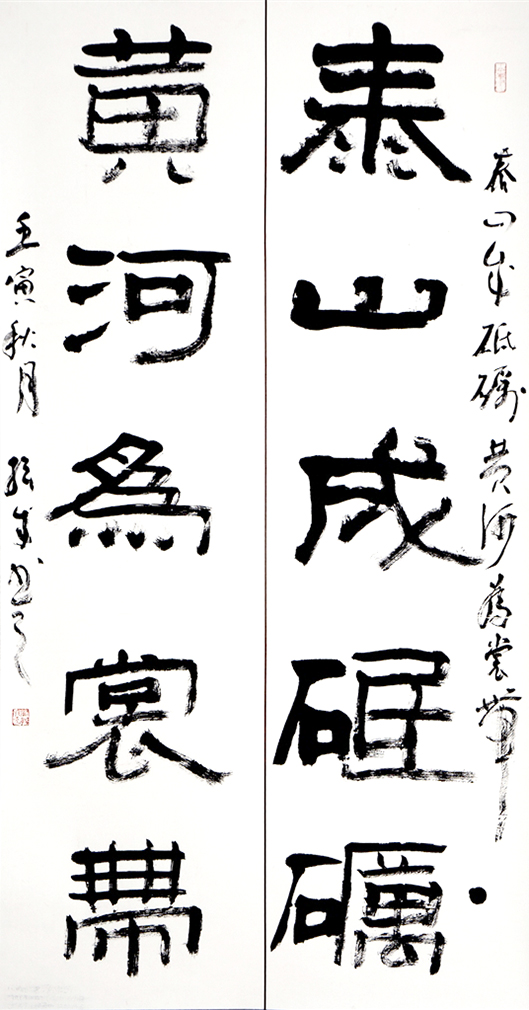 泰山成砥礪
泰山成砥礪黄河為裳帶
黃河為裳帶
壬寅秋月